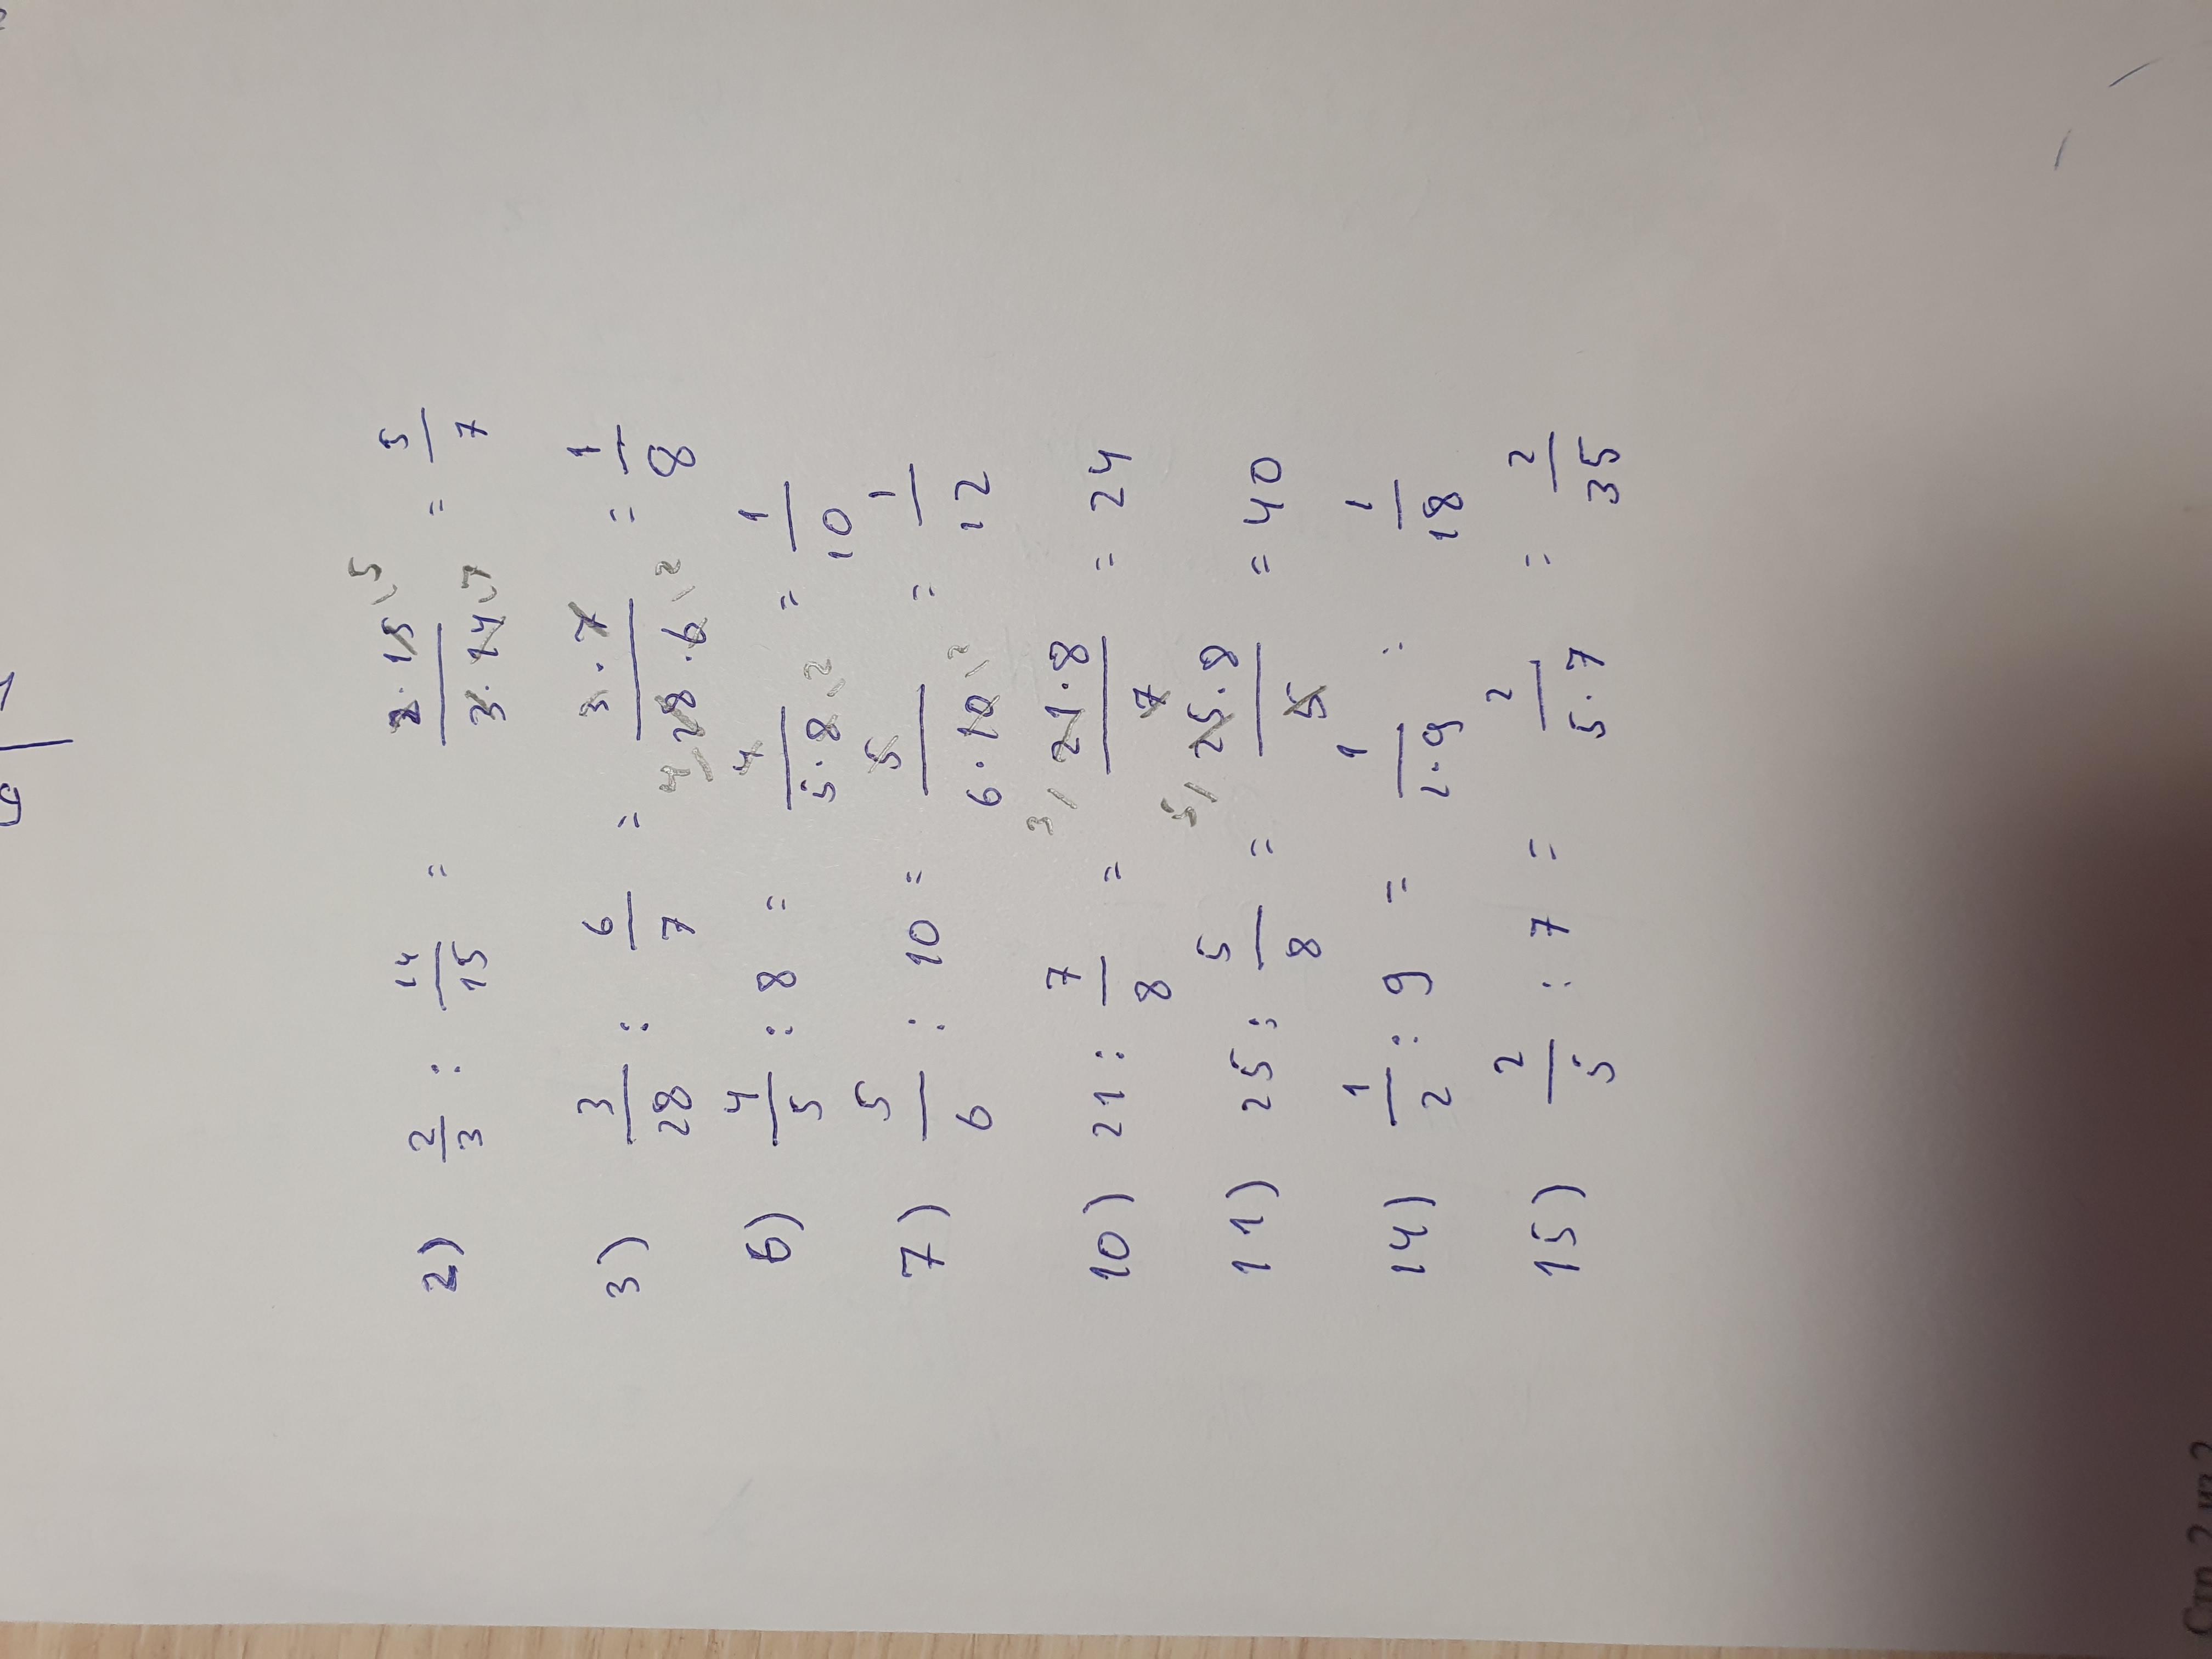 2) 2/3 : 14/15 = 2·15\5 / 3·14\7 = 5/7
3) 3/28 : 6/7 = 3·7 / 4/28·6\2 = 1/8
6) 4/5 : 8 = 4 / 5·8\2 = 1/10
7) 5/6 : 10 = 5 / 6·10\2 = 1/12
10) 21 : 7/8 = 3/21·8 / 7 = 24
11) 25 : 5/8 = 5/25·8 / 5 = 40
14) 1/2 : 9 = 1 / 2·9 = 1/18
15) 2/5 : 7 = 2 / 5·7 = 2/35
Стр 2 из 2